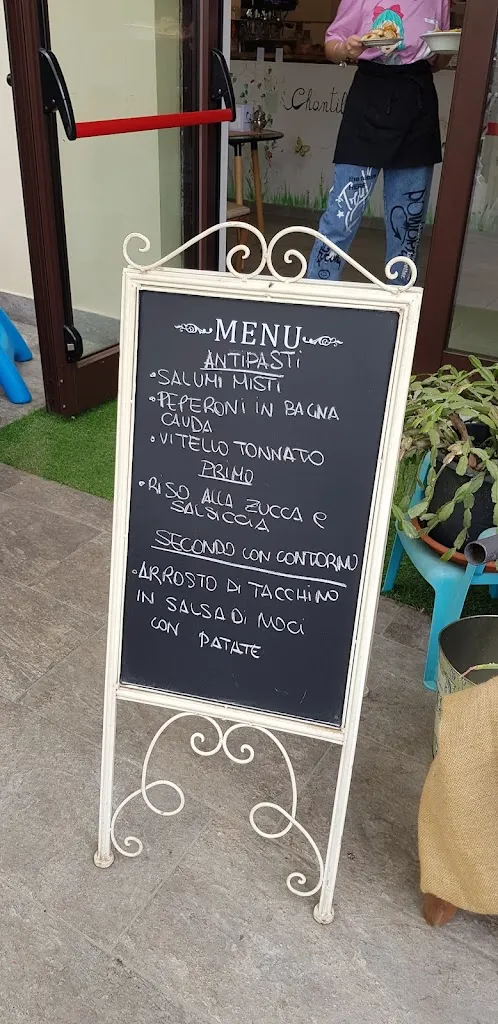 Chantil
MENU
ANTIPASTI
• SALUMI MISTI
• PEPERONI IN BAGNA
CAUDA
• VITELLO TONNATO
PRIMO
• RISO ALLA ZUCCA e
SALSICCIA
SECONDO CON CONTORNO
• ARROSTO DI TACCHINO
IN SALSA DI NOCI
CON PATATE